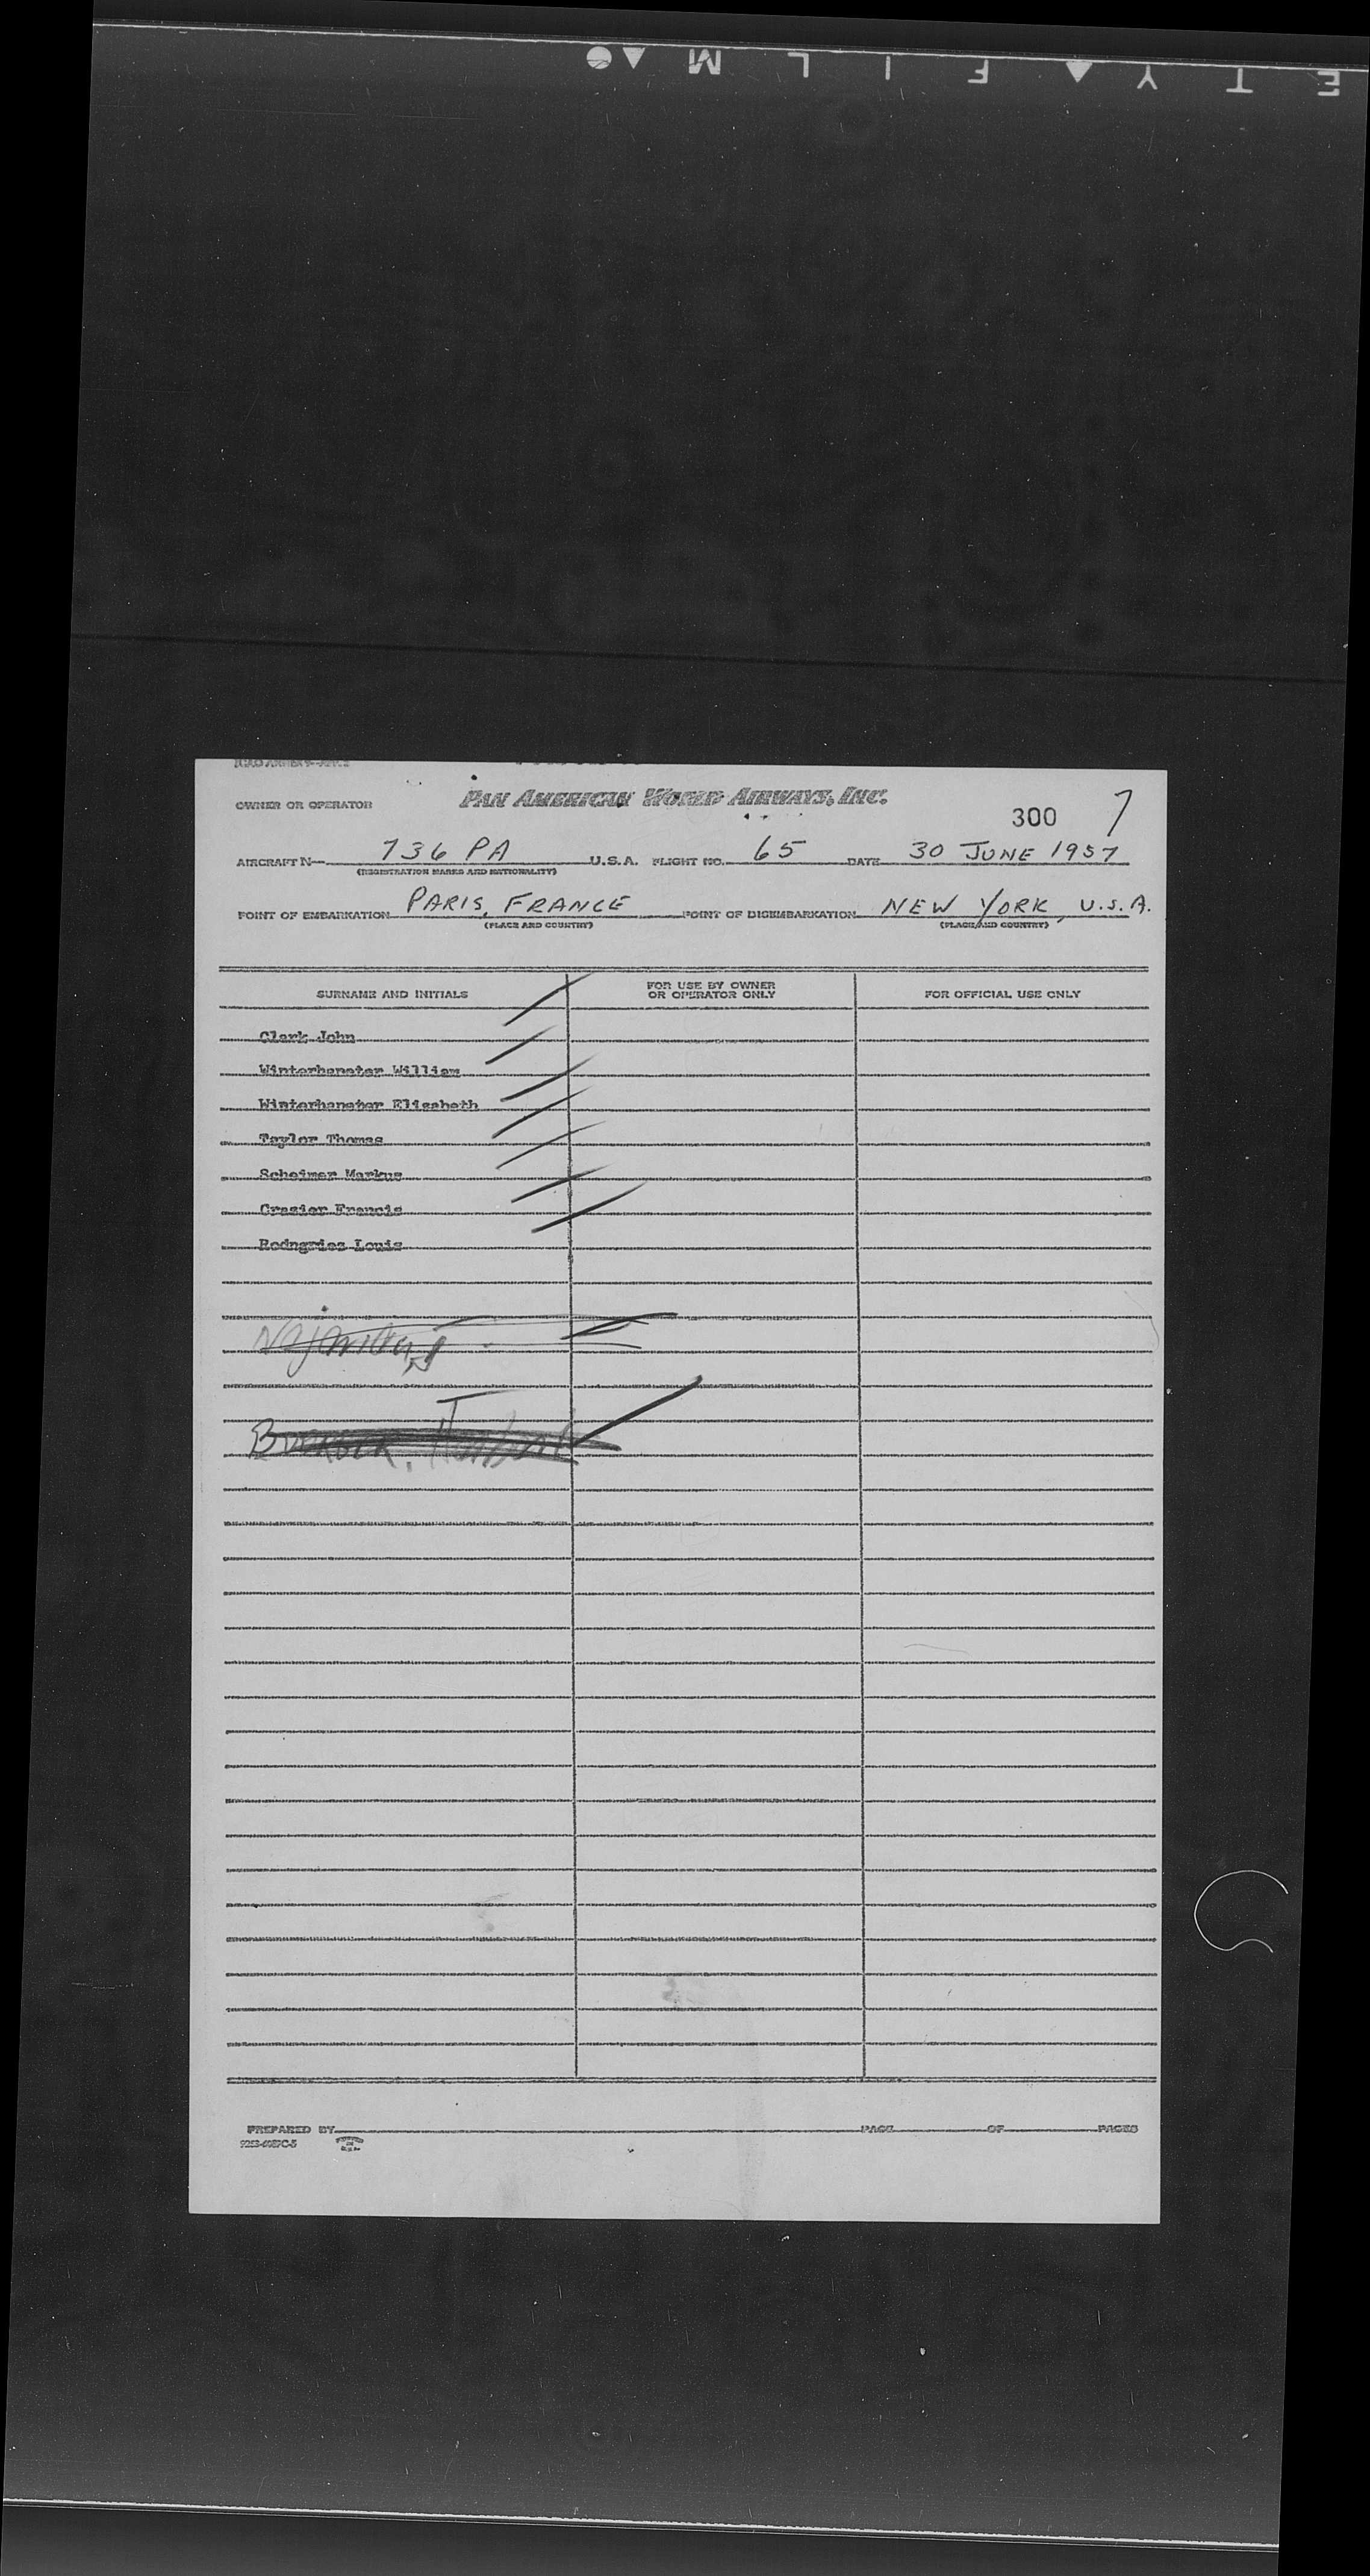 E T Y ▲ F I L M ▲ ●
OWNER OR OPERATOR PAN AMERICAN WORLD AIRWAYS, INC.
300 7
AIRCRAFT N— 736 PA U.S.A. FLIGHT NO. 65 DATE 30 JUNE 1957
(REGISTRATION MARKS AND NATIONALITY)
POINT OF EMBARKATION PARIS, FRANCE POINT OF DISEMBARKATION NEW YORK, U.S.A.
(PLACE AND COUNTRY) (PLACE AND COUNTRY)
SURNAME AND INITIALS FOR USE BY OWNER OR OPERATOR ONLY FOR OFFICIAL USE ONLY
Clark John
Winterhanster William
Winterhanster Elisabeth
Taylor Thomas
Scheimer Markus
Crasier Francis
Rodngries Louis
PREPARED BY PAGE OF PAGES
PRINTED IN U.S.A.